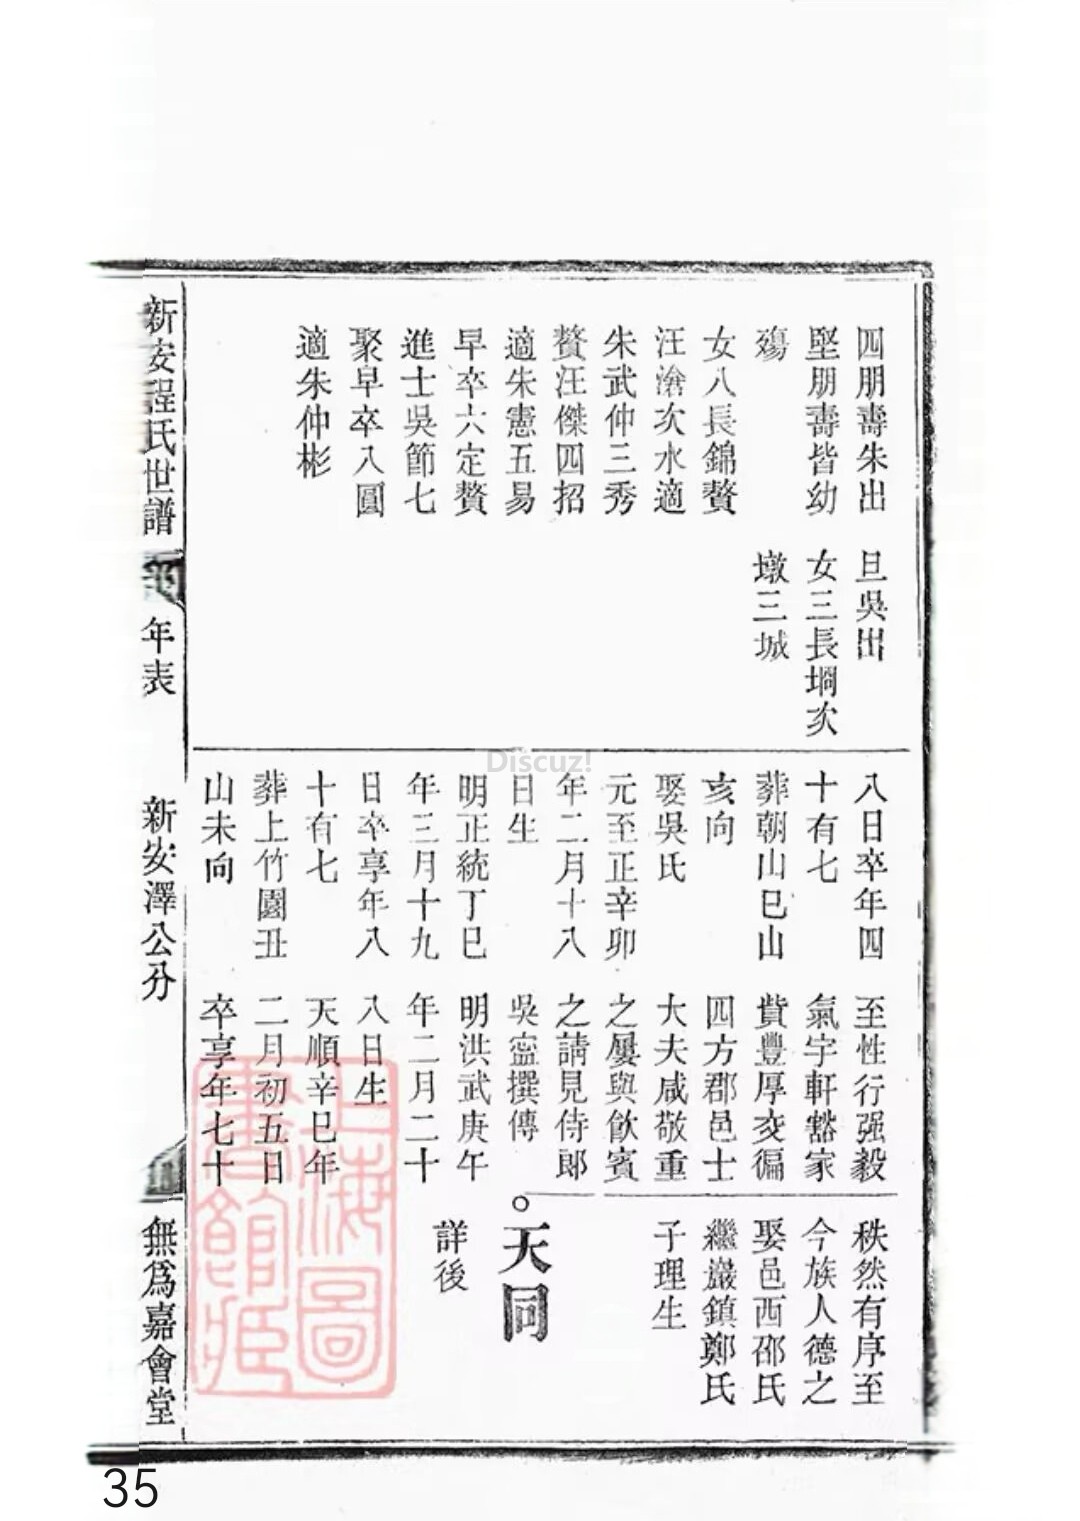 四朋壽朱出
堅朋壽皆幼
殤
女八長錦贅
汪滄次水適
朱武仲三秀
贅汪傑四招
適朱憲五易
早卒六定贅
進士吳節七
聚早卒八圓
適朱仲彬
旦吳出
女三長堈次
墩三城
八日卒年四
十有七
葬朝山巳山
亥向
娶吳氏
元至正辛卯
年二月十八
日生
明正統丁巳
年三月十九
日卒享年八
十有七
葬上竹園丑
山未向
至性行强毅
氣宇軒豁家
貲豐厚交徧
四方郡邑士
大夫咸敬重
之屢與飮賓
之請見侍郞
吳寍撰傳
明洪武庚午
年二月二十
八日生
天順辛巳年
二月初五日
卒享年七十
秩然有序至
今族人德之
娶邑西邵氏
繼巖鎮鄭氏
子理生
。天同
詳後
新安程氏世譜
年表
新安澤公分
無爲嘉會堂
上海圖
書館藏
Discuz!
35